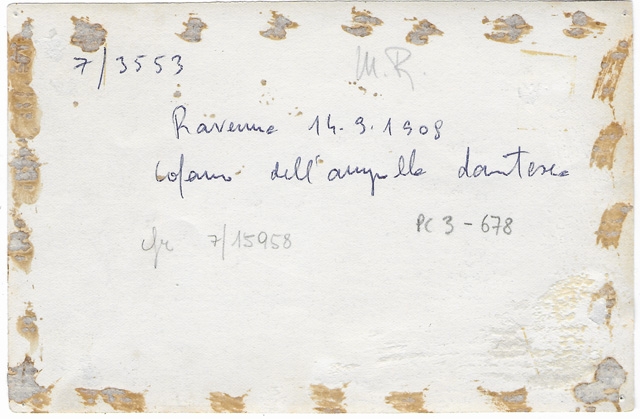 7/3553
M.R.
Ravenna 14.9.1908
Cofano dell'ampolla dantesca
cfr 7/15958
PC 3-678